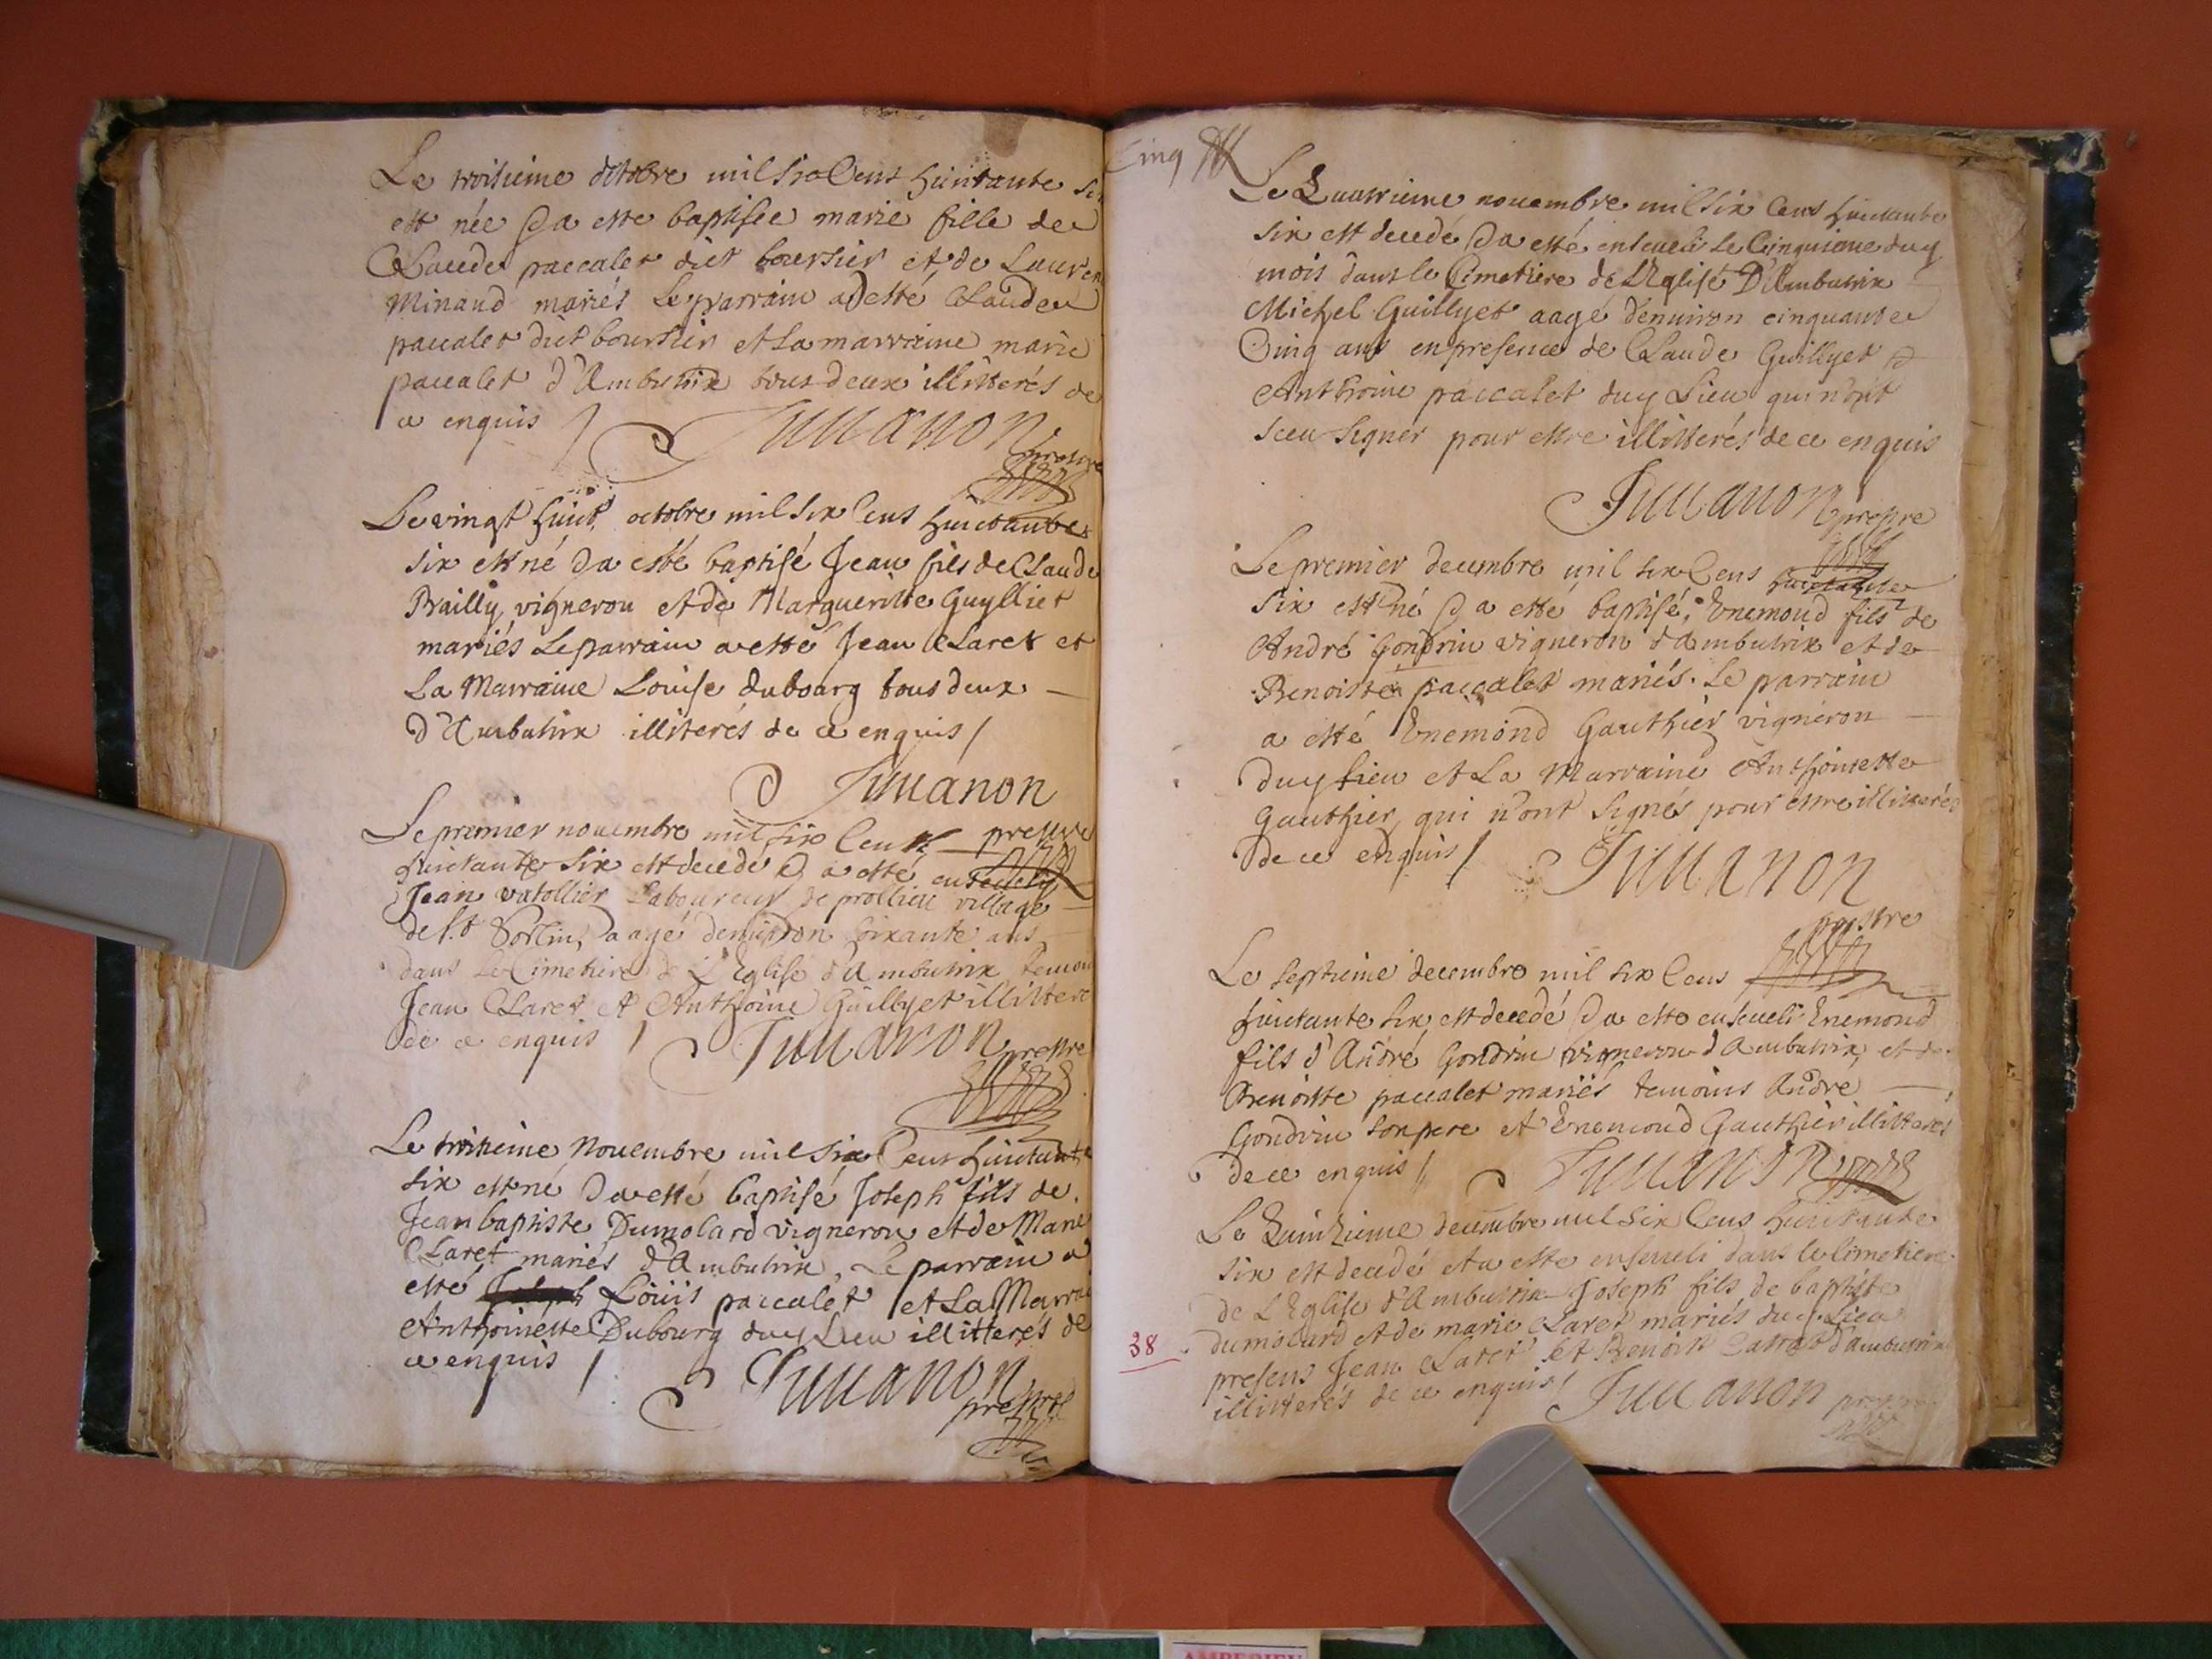 Le troisieme octobre mil six Cens huictante six
est née & a esté baptisée marie fille de
Claude paccalet dict boursier et de Lauren
Minaud mariés Le parrain a esté Claude
paccalet dict boursier et La marraine marie
paccalet d'Ambutrix tous deux illitterés de
ce enquis /
Jumanon prestre
Le vingt huict octobre mil six Cens huictante
six est né & a esté baptisé Jean fils de Claude
Brailly vigneron et de Margueritte Guylliet
mariés Le parrain a esté Jean Claret et
La Marraine Louise dubourg tous deux
d'Ambutrix illiterés de ce enquis /
Jumanon
prestre
Le premier nouembre mil six Cens
huictante six est decedé & a esté enseueli
Jean vatollier Laboureur de prollieu village
de S.t Sorlin, aagé d'enuiron soixante ans
dans Le Cimetiere de L'Eglise d'Ambutrix temoin
Jean Claret et Anthoine Guillyet illittere
de ce enquis /
Jumanon prestre
Le troisieme Nouembre mil six Cens huictante
six est né & a esté baptisé Joseph fils de
Jean baptiste Dumolard vigneron et de Marie
Claret mariés d'Ambutrix. Le parrain a
esté Louis paccalet et La Marrai
Anthoinette Dubourg duy Lieu illitterés de
ce enquis /
Jumanon
prestre
Cinq
Le Quatrieme nouembre mil six Cens huictante
six est decedé & a esté enseueli le Cinquieme duy
mois dans le Cimetiere de L'Eglise D'Ambutrix
Michel Guillyet aagé d'enuiron cinquante
Cinq ans en presence de Claude Guillyet &
Anthoine paccalet duy Lieu qui n'ont
sceu signer pour estre illitterés de ce enquis
Jumanon prestre
Le premier decembre mil six Cens huictante
six est né & a esté baptisé, Enemond fils de
André Gondrin vigneron d'Ambutrix et de
Benoiste paccalet mariés. Le parrain
a esté Enemond Gauthier vigneron
duy lieu et La Marraine Anthoinette
Gauthier, qui n'ont signés pour estre illitterés
de ce enquis /
Jumanon
prestre
Le septieme decembre mil six Cens
huictante six est decedé & a esté enseueli Enemond
fils d'André Gondrin vigneron d'Ambutrix, et de
Benoitte paccalet mariés temoins André
Gondrin son pere et Enemond Gauthier illitterés
de ce enquis /
Jumanon
Le Quinzieme decembre mil six Cens huictante
six est decedé et a esté enseueli dans le Cimetiere
de L'Eglise d'Ambutrix Joseph fils de baptiste
dumolard et de marie Claret mariés duy Lieu
presens Jean Claret et Benoit Claret d'ambutrix
illitterés de ce enquis /
Jumanon prestre
38
AMBERIEU